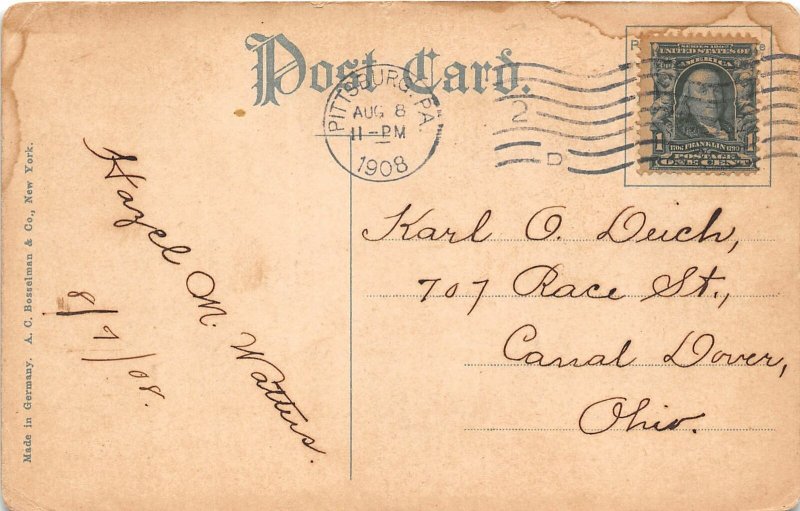 Post Card.
PITTSBURG, PA.
AUG 8
11-PM
1908
2
D
SERIES 1902
UNITED STATES OF
AMERICA
1706 FRANKLIN 1790
POSTAGE
1 ONE CENT 1
Karl O. Deich,
707 Race St.,
Canal Dover,
Ohio.
Hazel M. Watters.
8/7/08.
Made in Germany. A. C. Bosselman & Co., New York.